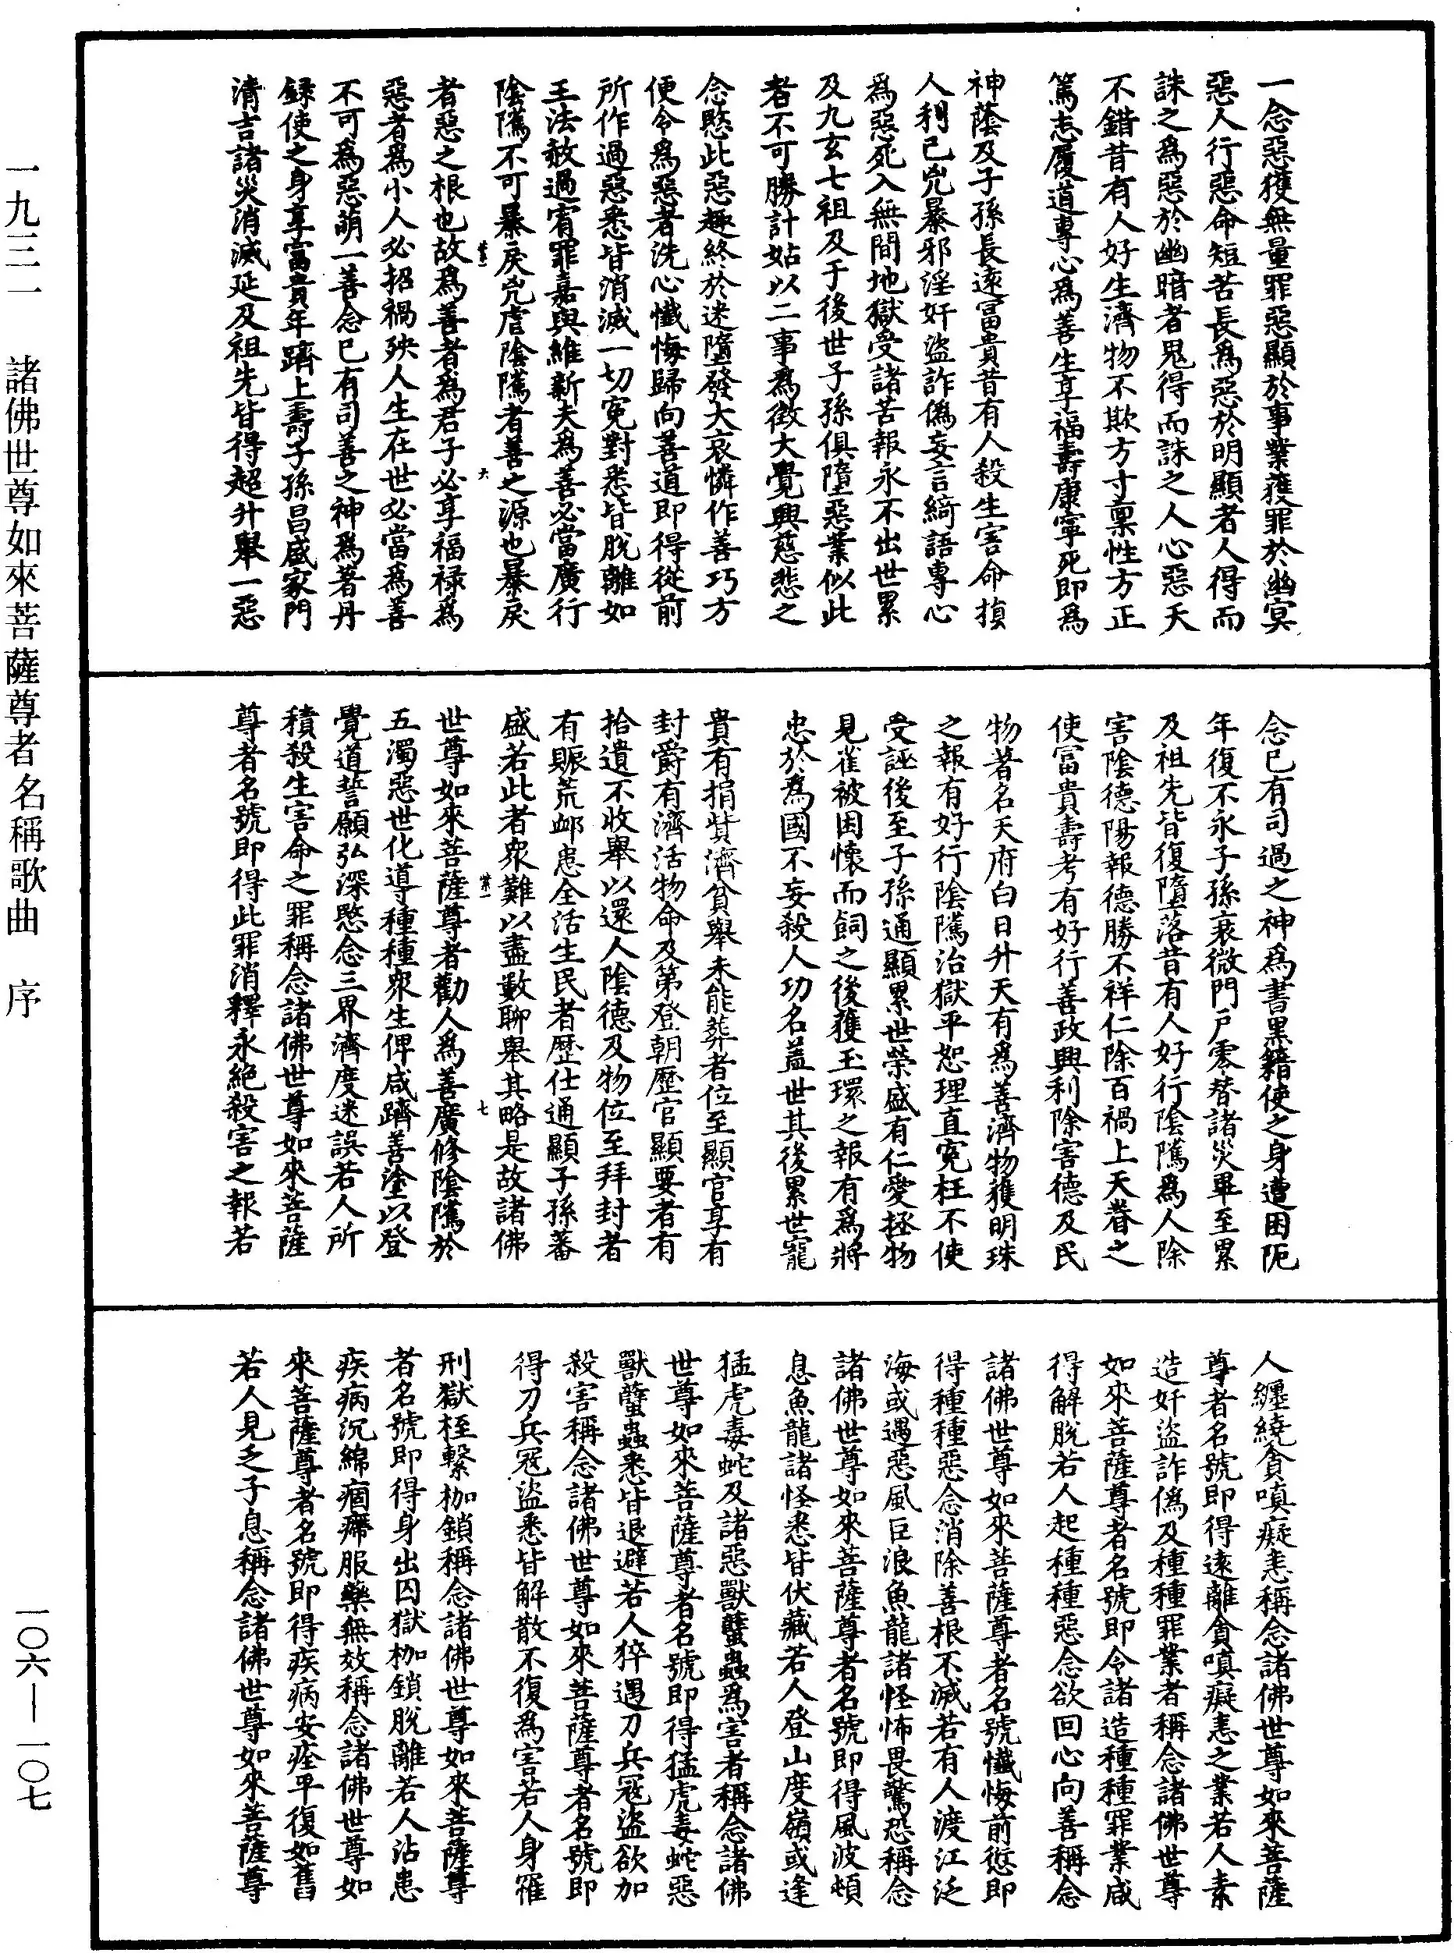 一念惡獲無量罪惡顯於事業獲罪於幽冥
惡人行惡命短苦長為惡於明顯者人得而
誅之為惡於幽暗者鬼得而誅之人心惡天
不錯昔有人好生濟物不欺方寸稟性方正
篤志履道專心為善生享福壽康寧死即為
神蔭及子孫長遠富貴昔有人殺生害命損
人利己兇暴邪淫奸盜詐偽妄言綺語專心
為惡死入無間地獄受諸苦報永不出世累
及九玄七祖及于後世子孫俱墮惡業似此
者不可勝計姑以二事為徵大覺興慈悲之
念愍此惡趣終於迷墮發大哀憐作善巧方
便令為惡者洗心懺悔歸向善道即得從前
所作過惡悉皆消滅一切寃對悉皆脫離如
王法赦過宥罪嘉與維新夫為善必當廣行
陰隲不可暴戾兇虐陰隲者善之源也暴戾
者惡之根也故為善者為君子必享福禄為
惡者為小人必招禍殃人生在世必當為善
不可為惡萌一善念已有司善之神為著丹
録使之身享富貴年躋上壽子孫昌盛家門
清吉諸災消滅延及祖先皆得超升舉一惡
念已有司過之神為書黑籍使之身遭困阨
年復不永子孫衰微門戸零替諸災畢至累
及祖先皆復墮落昔有人好行陰隲為人除
害陰德陽報德勝不祥仁除百禍上天眷之
使富貴壽考有好行善政興利除害德及民
物著名天府白日升天有為善濟物獲明珠
之報有好行陰隲治獄平恕理直寃枉不使
受誣後至子孫通顯累世榮盛有仁愛拯物
見雀被困懷而飼之後獲玉環之報有為將
忠於為國不妄殺人功名蓋世其後累世寵
貴有捐貲濟貧舉未能葬者位至顯官享有
封爵有濟活物命及第登朝歷官顯要者有
拾遺不收舉以還人陰德及物位至拜封者
有賑荒邺患全活生民者歷仕通顯子孫蕃
盛若此者眾難以盡數聊舉其略是故諸佛
世尊如來菩薩尊者勸人為善廣修陰隲於
五濁惡世化導種種衆生俾咸躋善塗以登
覺道誓願弘深愍念三界濟度迷誤若人所
積殺生害命之罪稱念諸佛世尊如來菩薩
尊者名號即得此罪消釋永絕殺害之報若
人纏繞貪嗔癡恚稱念諸佛世尊如來菩薩
尊者名號即得遠離貪嗔癡恚之業若人素
造奸盜詐偽及種種罪業者稱念諸佛世尊
如來菩薩尊者名號即令諸造種種罪業咸
得解脫若人起種種惡念欲回心向善稱念
諸佛世尊如來菩薩尊者名號懺悔前愆即
得種種惡念消除善根不滅若有人渡江泛
海或遇惡風巨浪魚龍諸怪怖畏驚恐稱念
諸佛世尊如來菩薩尊者名號即得風波頓
息魚龍諸怪悉皆伏藏若人登山度嶺或逢
猛虎毒蛇及諸惡獸蠥蟲為害者稱念諸佛
世尊如來菩薩尊者名號即得猛虎毒蛇惡
獸蠥蟲悉皆退避若人猝遇刀兵冦盜欲加
殺害稱念諸佛世尊如來菩薩尊者名號即
得刀兵冦盜悉皆解散不復為害若人身罹
刑獄桎繫枷鎖稱念諸佛世尊如來菩薩尊
者名號即得身出囚獄枷鎖脫離若人沾患
疾病沉綿痼癠服藥無效稱念諸佛世尊如
來菩薩尊者名號即得疾病安痊平復如舊
若人見乏子息稱念諸佛世尊如來菩薩尊
一九三二 諸佛世尊如來菩薩尊者名稱歌曲 序
一〇六—一〇七
六
七